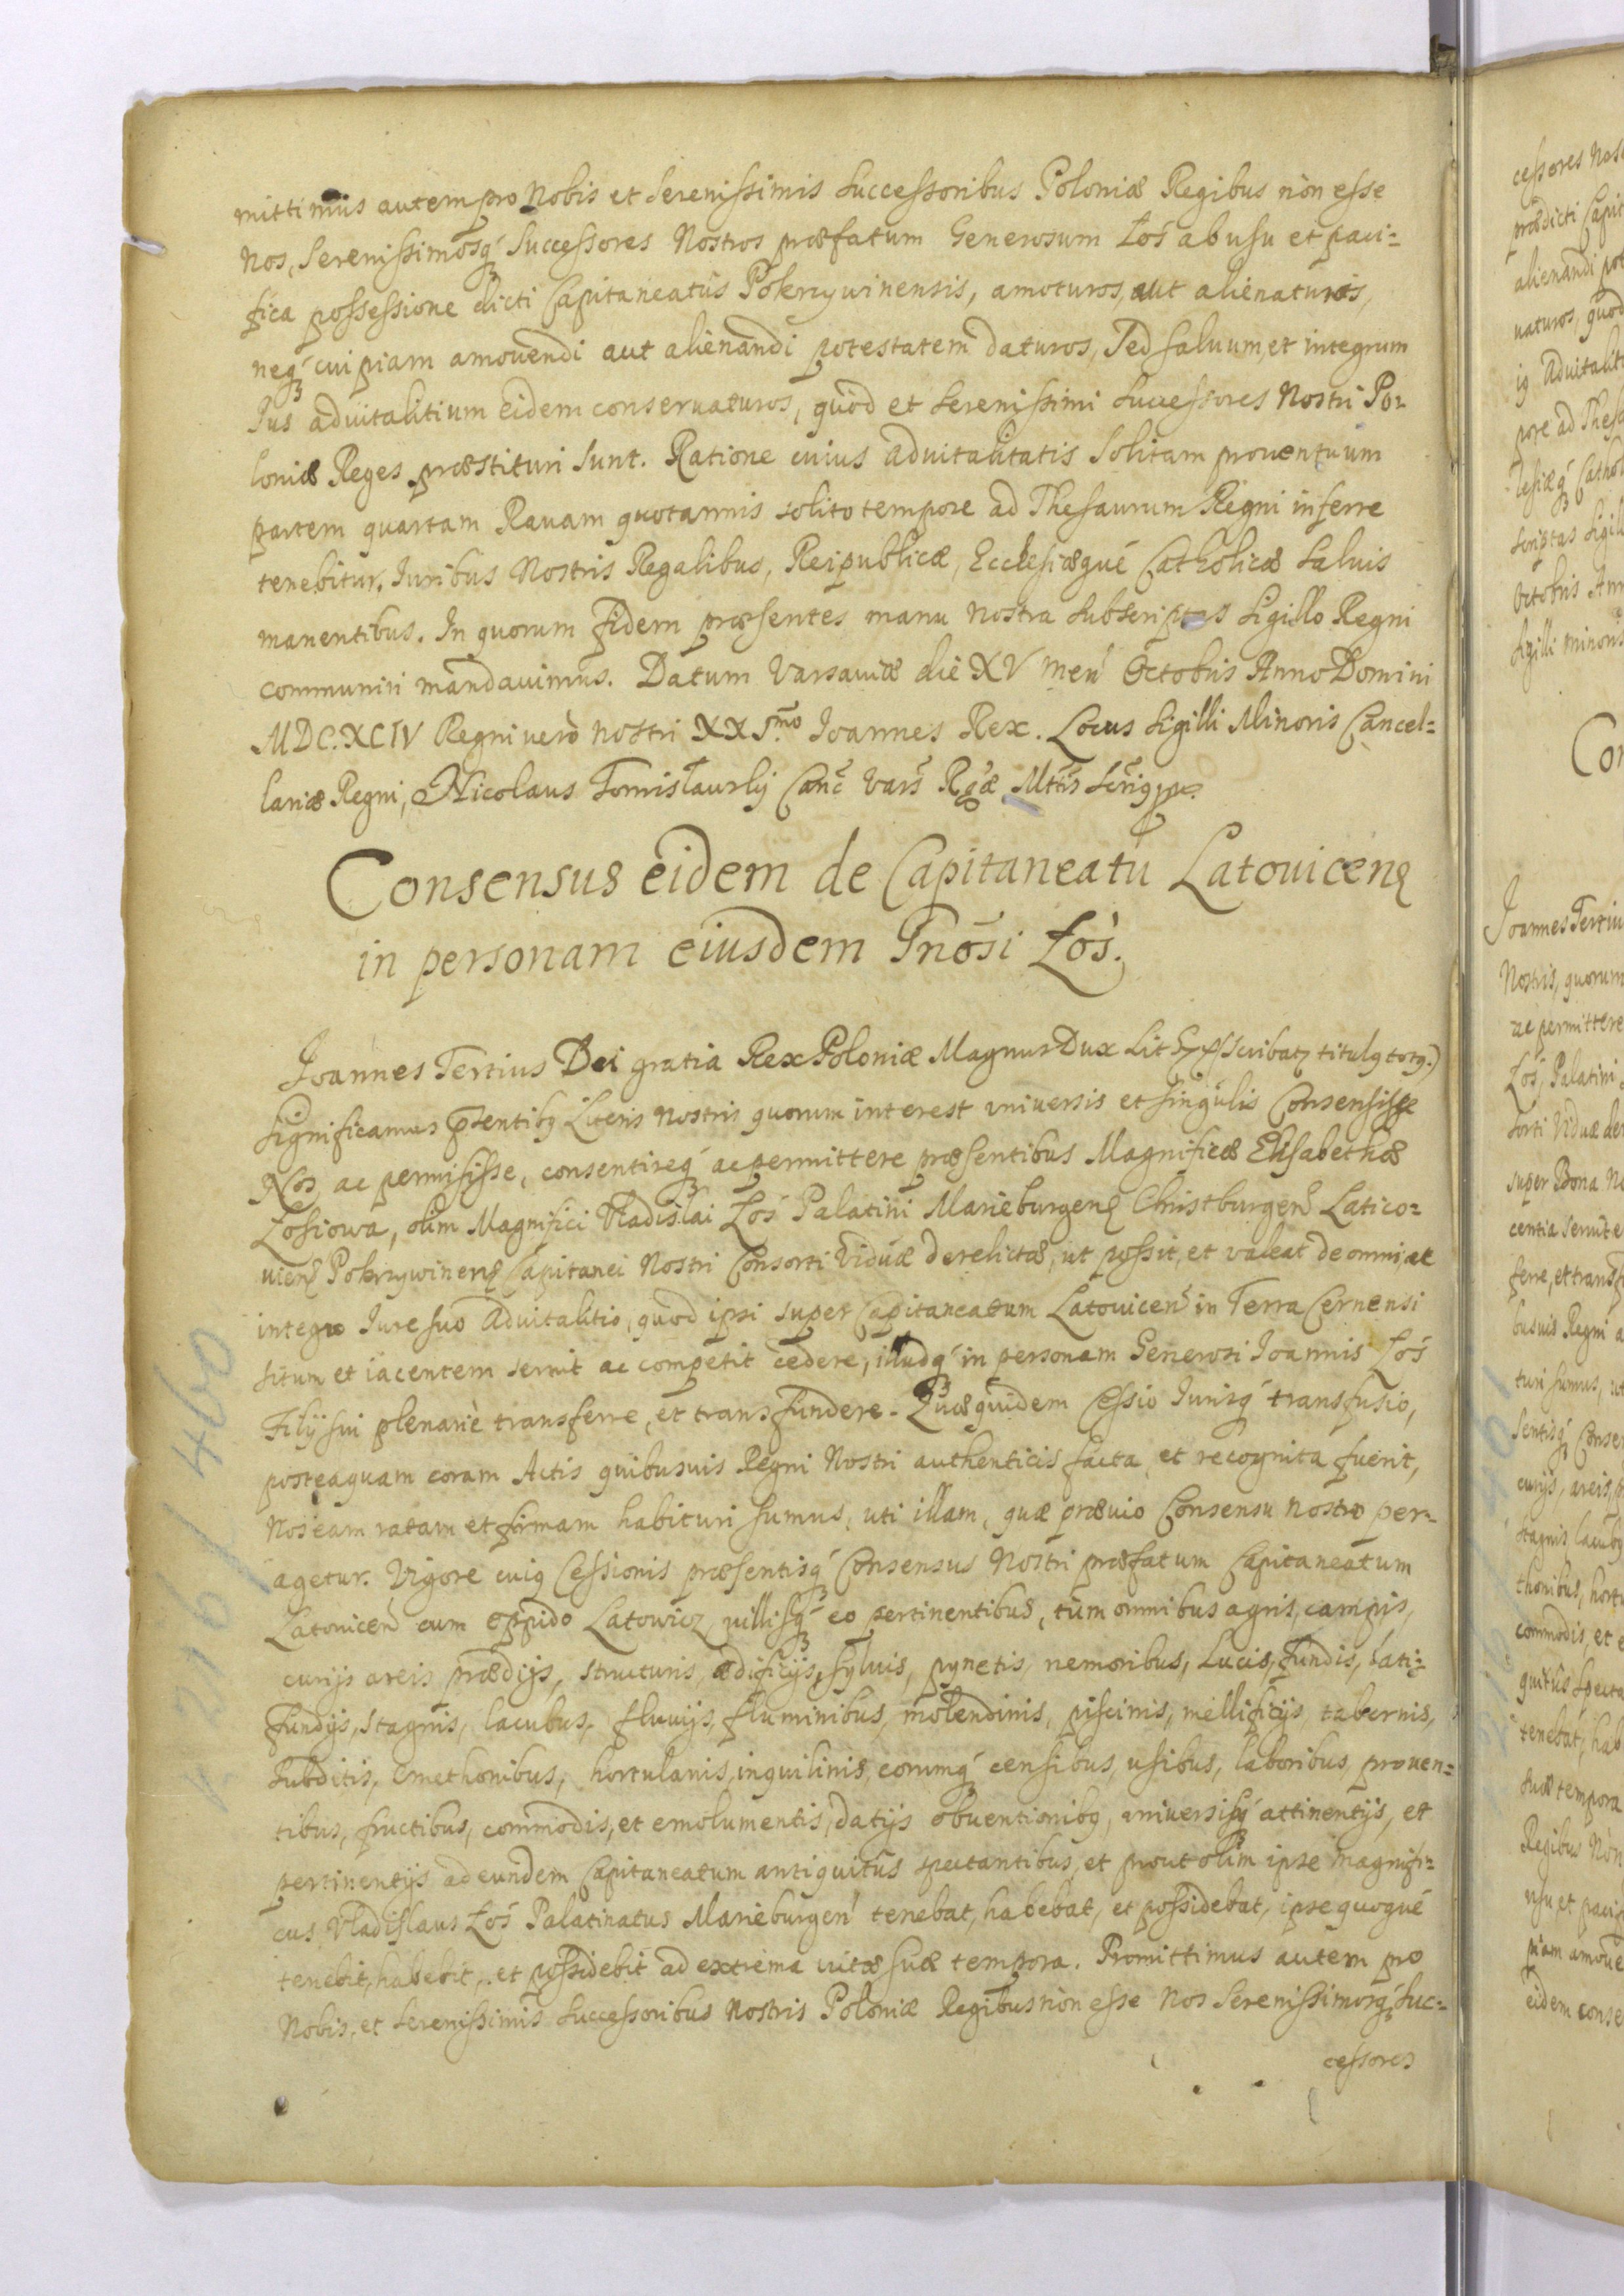 mittimus autem pro Nobis et Serenissimis Successoribus Poloniæ Regibus non esse
Nos, Serenissimosq́ꝫ Successores Nostros præfatum Generosum Łoś ab usu et paci=
fica possessione dicti Capitaneatûs Pokrzywinensis, amoturos, aut alienaturos,
neq́ꝫ cuipiam amouendi aut alienandi potestatem daturos, Sed saluum, et integrum
Ius aduitalitium eidem conseruaturos, quòd et Serenissimi Successores Nostri Po=
loniæ Reges præstituri sunt. Ratione cuius aduitalitatis solitam prouentuum
partem quartam Rauam quotannis solito tempore ad Thesaurum Regni inferre
tenebitur. Iuribus Nostris Regalibus, Reipublicæ, Ecclesiæqué Catholicæ saluis
manentibus. In quorum fidem præsentes manu nostra subscriptas sigillo Regni
communiri mandauimus. Datum Varsauiæ die XV Men̄ Octobris Anno Domini
MDC.XCIV Regni verò nostri XXI.mo Ioannes Rex. Locus Sigilli Minoris Cancel=
lariæ Regni, Nicolaus Tomisławsky Canc̄ Vars̄ Rg̃æ Mt̃tis
Consensus eidem de Capitaneatu Latouicen̄
in personam eiusdem Gnōsi Łoś.
Ioannes Tertius Dei gratia Rex Poloniæ Magnus Dux Lit (scribatꝫ titulꝯ totꝯ.)
Significamus p̄sentibꝯ Literis nostris quorum interest vniuersis et singulis Consensisse
Nos ac permisisse, consentireq́ꝫ ac permittere præsentibus Magnificæ Elisabethæ
Łosiowa, olim Magnifici Vladislai Łoś Palatini Marieburgen̄ Christburgen̄ Latico=
uicen̄ Pokrzywinen̄ Capitanei Nostri Consorti Viduæ derelictæ, ut possit, et valeat de omni ac
integro Iure suo Aduitalitio, quòd ipsi super Capitaneatum Latouicen̄ in Terra Cernensi
situm et iacentem seruit ac competit cedere, illudq́ꝫ in personam Generosi Ioannis Łoś
Filij sui plenariè transferre, et transfundere. Quæquidem Cessio Iurisq́ꝫ transfusio,
posteaquam coram Actis quibusuis Regni Nostri authenticis facta et recognita fuerit,
Nos eam ratam et firmam habituri sumus, uti illam, quæ præuio Consensu nostro per=
agetur. Vigore cuiꝯ Cessionis præsentisq́ꝫ Consensus Nostri præfatum Capitaneatum
Latouicen̄ cum oppido Latowicz, villisq́ꝫ eo pertinentibus, tùm omnibus agris, campis,
curijs areis prædijs, structuris, ædificijs, syluis, pynetis, nemoribus, Lucis, fundis, lati=
fundijs, stagnis, lacubus, fluuijs, fluminibus, molendinis, piscinis, mellificijs, tabernis,
subditis, Cmethonibus, hortulanis, inquilinis, eorumq́ꝫ censibus, usibus, laboribus, prouen=
tibus, fructibus, commodis, et emolumentis, datijs obuentionibꝯ, vniuersisq́ꝫ attinentijs, et
pertinentijs ad eundem Capitaneatum antiquitùs spectantibus, et prout olim ipse Magnifi=
cus Vladislaus Łoś Palatinatus Marieburgen̄ tenebat, habebat, et possidebat, ipse quoqué
tenebit, habebit, et possidebit ad extrema vitæ suæ tempora. Promittimus autem pro
Nobis, et Serenissimis Successoribus Nostris Poloniæ Regibus non esse Nos Serenissimosq́ꝫ Suc=
cessores